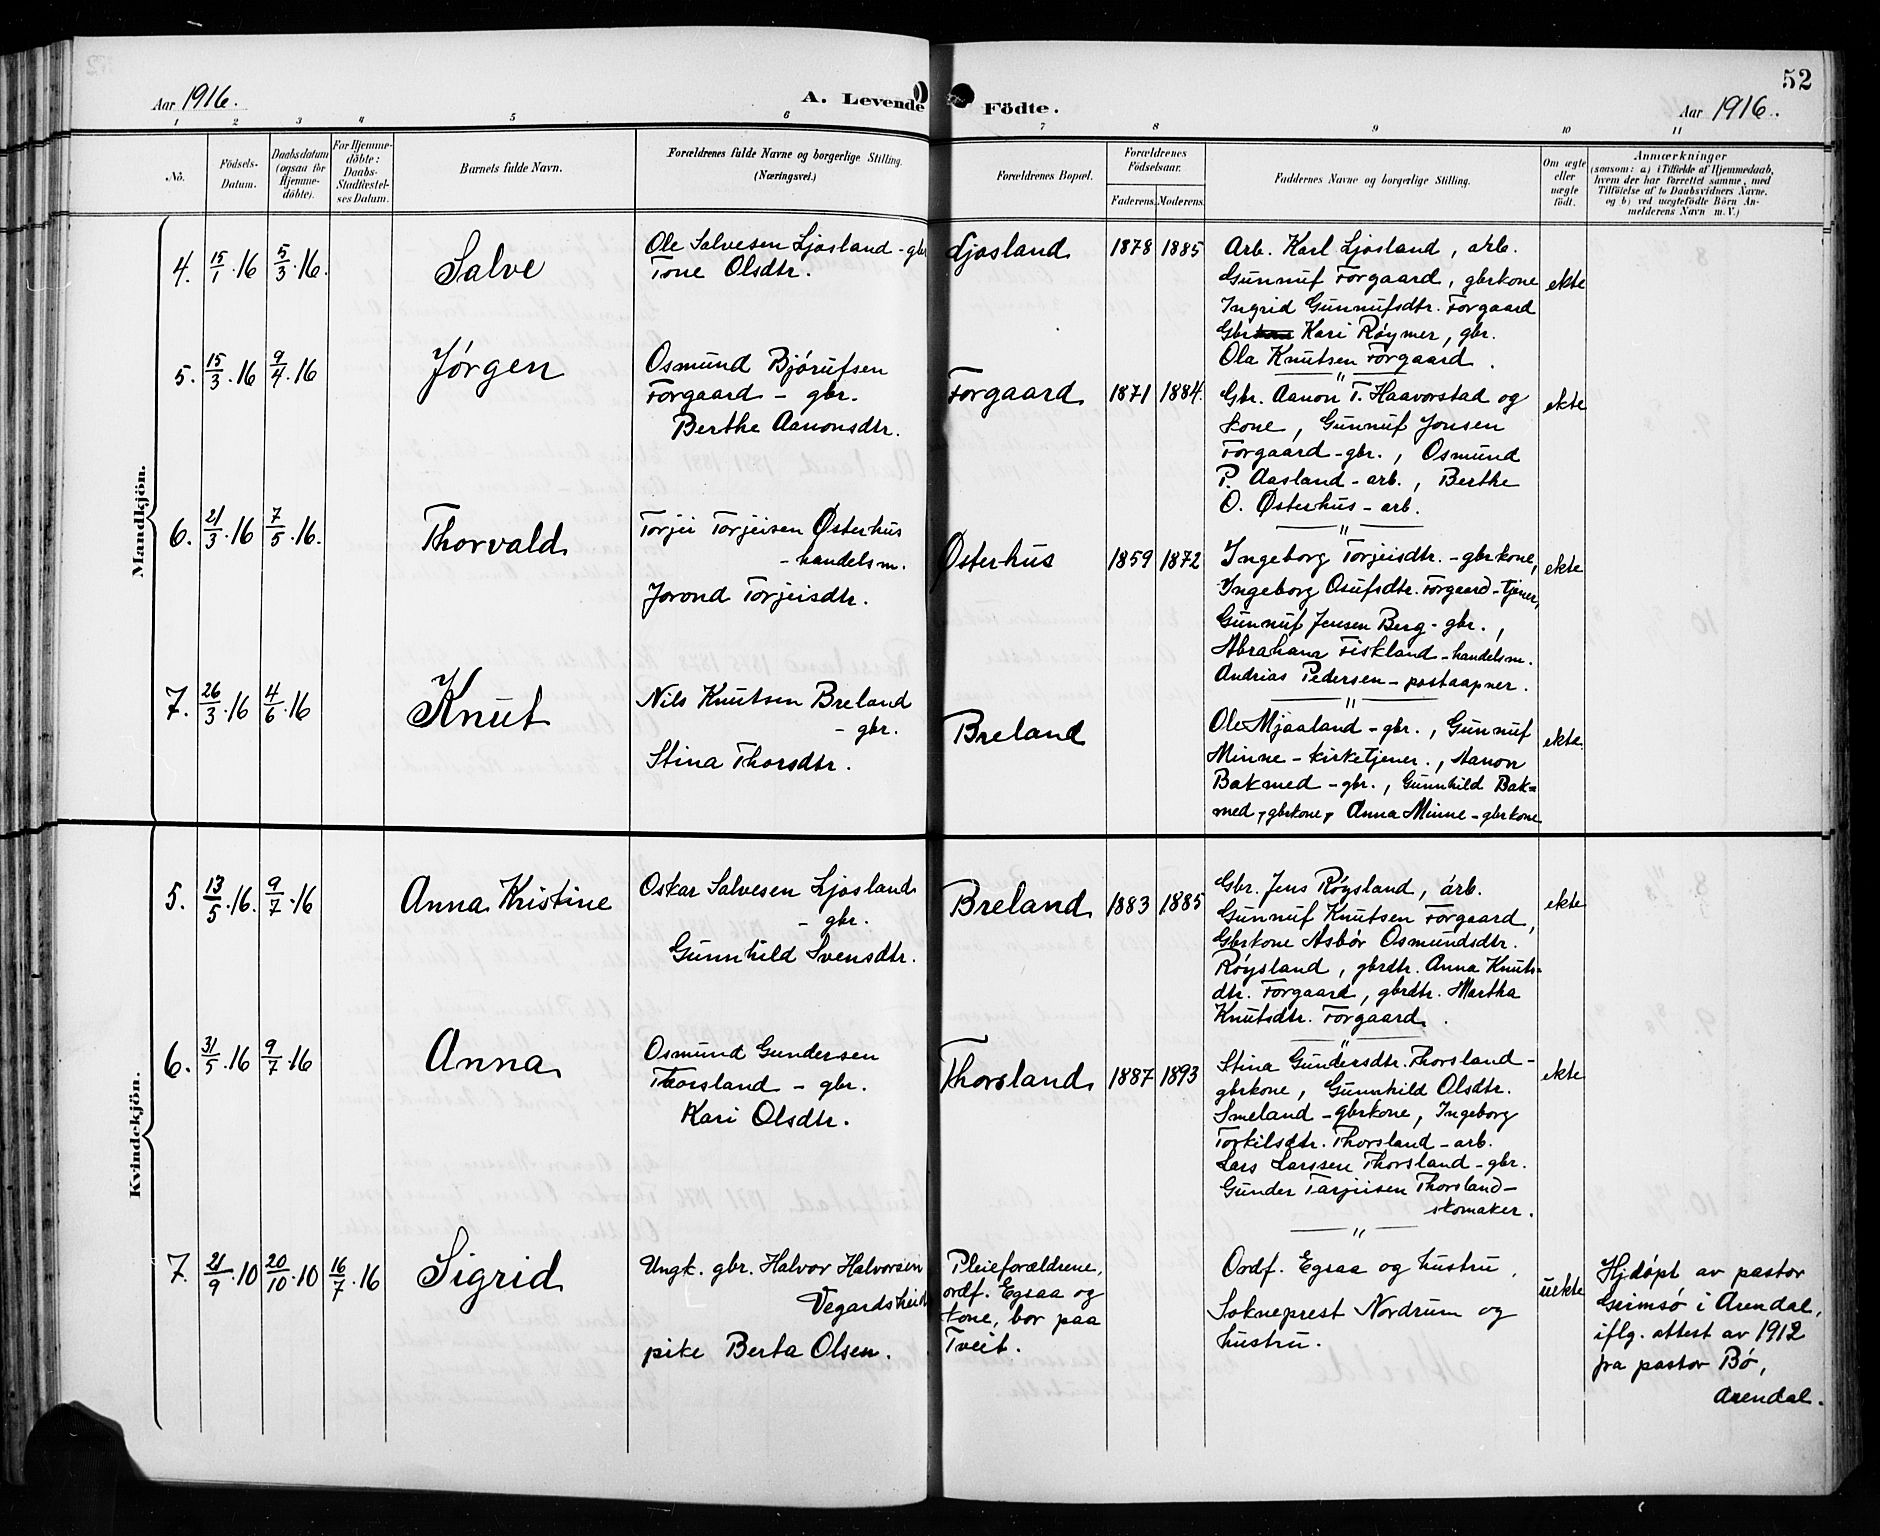 52
Aar 1916.
A. Levende Födte.
Aar 1916.
1 2 3 4 5 6 7 8 9 10 11
No.
Födsels-Datum.
Daabsdatum (ogsaa for Hjemme-döbte).
For Hjemme-döbte: Daabs-Stadfæstel-ses Datum.
Barnets fulde Navn.
Forældrenes fulde Navne og borgerlige Stilling.
(Næringsvei.)
Forældrenes Bopæl.
Forældrenes Födselsaar.
Faderens. Moderens.
Faddernes Navne og borgerlige Stilling.
Om ægte eller uægte födt.
Anmærkninger
(saasom: a) i Tilfælde af Hjemmedaab,
hvem der har forrettet samme, med
Tilföielse af to Daabsvidners Navne.
og b) ved uægtefödte Börn An-
melderens Navn m. V.)
Mandkjön.
4. 15/1·16 5/3·16. Salve
Ole Salvesen Ljosland - gbr
Tone Olsdtr.
Ljosland 1878 1885
Arb. Karl Ljosland, arb.
Gunnuf Forgaard, gbrkone
Ingrid Gunnufsdtr. Forgaard
Gbr Kari Røymer, gbr.
Ola Knutsen Forgaard.
ekte
5. 15/3·16 9/4·16 Jørgen
Osmund Bjørufsen
Forgaard - gbr.
Berthe Aanonsdtr.
Forgaard 1871 1884.
Gbr. Aanon T. Haavorstad og
kone, Gunnuf Jonsen
Forgaard - gbr., Osmund
P. Aasland - arb., Berthe
O. Østerhus - arb.
ekte
6. 21/3·16 7/5·16. Thorvald
Torjei Torjeisen Østerhus
- handelsm.
Jorond Torjeisdtr.
Østerhus 1859 1872
Ingeborg Torjeisdtr. - gbrkone,
Ingeborg Osufsdtr. Forgaard - tjener,
Gunnuf Jensen Berg - gbr.,
Abraham Fiskland - handelsm.
Andrias Pedersen - postaapner.
ekte
7. 26/3·16 4/6·16 Knut
Nils Knutsen Breland
- gbr.
Stina Thorsdtr.
Breland
Ole Mjaaland - gbr., Gunnuf
Minne - kirketjener., Aanon
Bakmed - gbr., Gunnhild Bak=
med, gbrkone, Anna Minne - gbrkone
ekte.
Kvindekjön.
5. 13/5·16. 9/7·16 Anna Kristine
Oskar Salvesen Ljosland
- gbr.
Gunnhild Svensdtr.
Breland 1883 1885
Gbr. Jens Røysland, arb.
Gunnuf Knutsen Forgaard,
Gbrkone Asbør Osmundsdtr.
Røysland, gbrdtr. Anna Knuts=
dtr. Forgaard, gbrdtr. Martha
Knutsdtr. Forgaard.
ekte
6. 31/5·16 9/7·16 Anna
Osmund Gundersen
Thorsland - gbr.
Kari Olsdtr.
Thorsland 1887 1893
Stina Gundersdtr. Thorsland -
gbrkone, Gunnhild Olsdtr.
Smeland - gbrkone, Ingeborg
Torkilsdtr. Thorsland - arb.
Lars Larssen Thorsland - gbr.
Gunder Tarjeisen Thorsland -
skomaker.
ekte
7. 21/9·10 20/10·10 16/7·16 Sigrid
Ungk. gbr. Halvor Halvorsen
Vegardsheid
pike Berta Olsen.
Pleieforældrene,
ordf. Egsaa og
kone, bor paa
Tveit.
Ordf. Egsaa og hustru,
Sokneprest Nordrum og
hustru.
uekte
Hjdøpt av pastor
Grimsø i Arendal,
iflg. attest av 1912
fra pastor Bø,
Arendal.